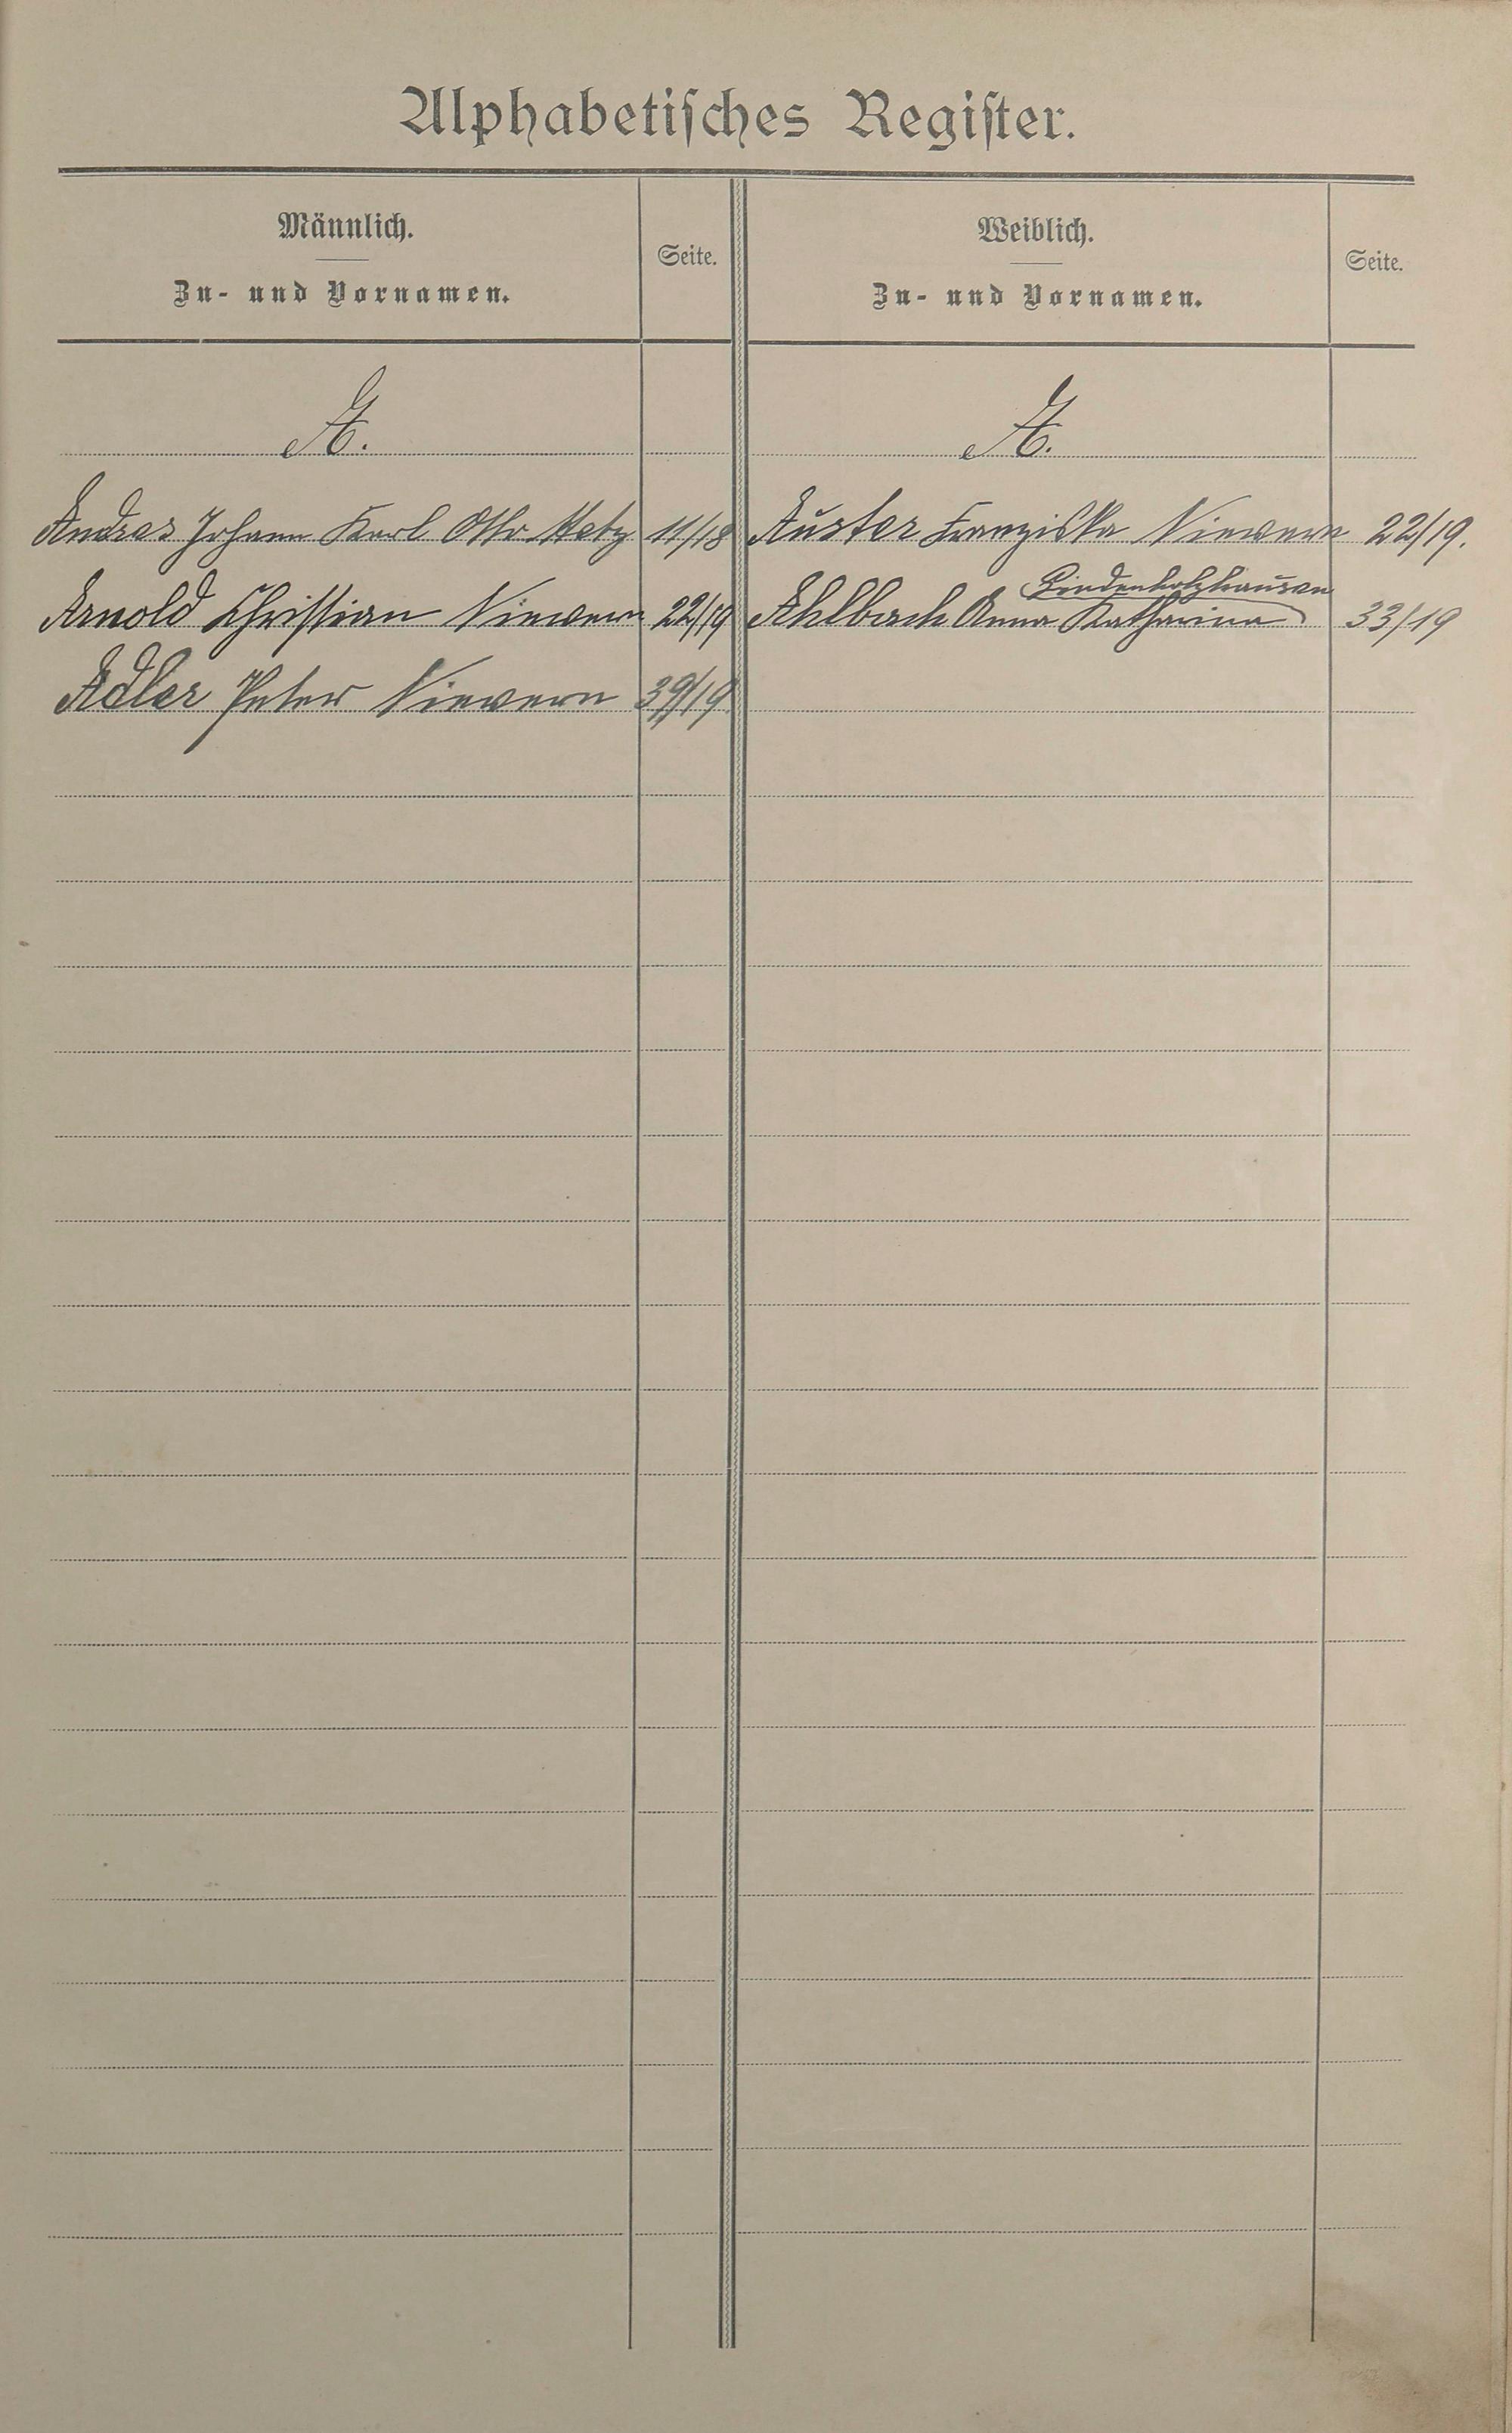 Alphabetisches Register.
Männlich.
Zu- und Vornamen.
Seite.
Weiblich.
Zu- und Vornamen.
Seite.
A.
A.
Andres Johann Karl Otto Metz 11/18
Auster Franziska Nievern 22/19.
Arnold Christian Nievern 22/19
Lindenholzhausen
Ahlbach Anna Katharina 33/19
Adler Peter Nievern 39/19.